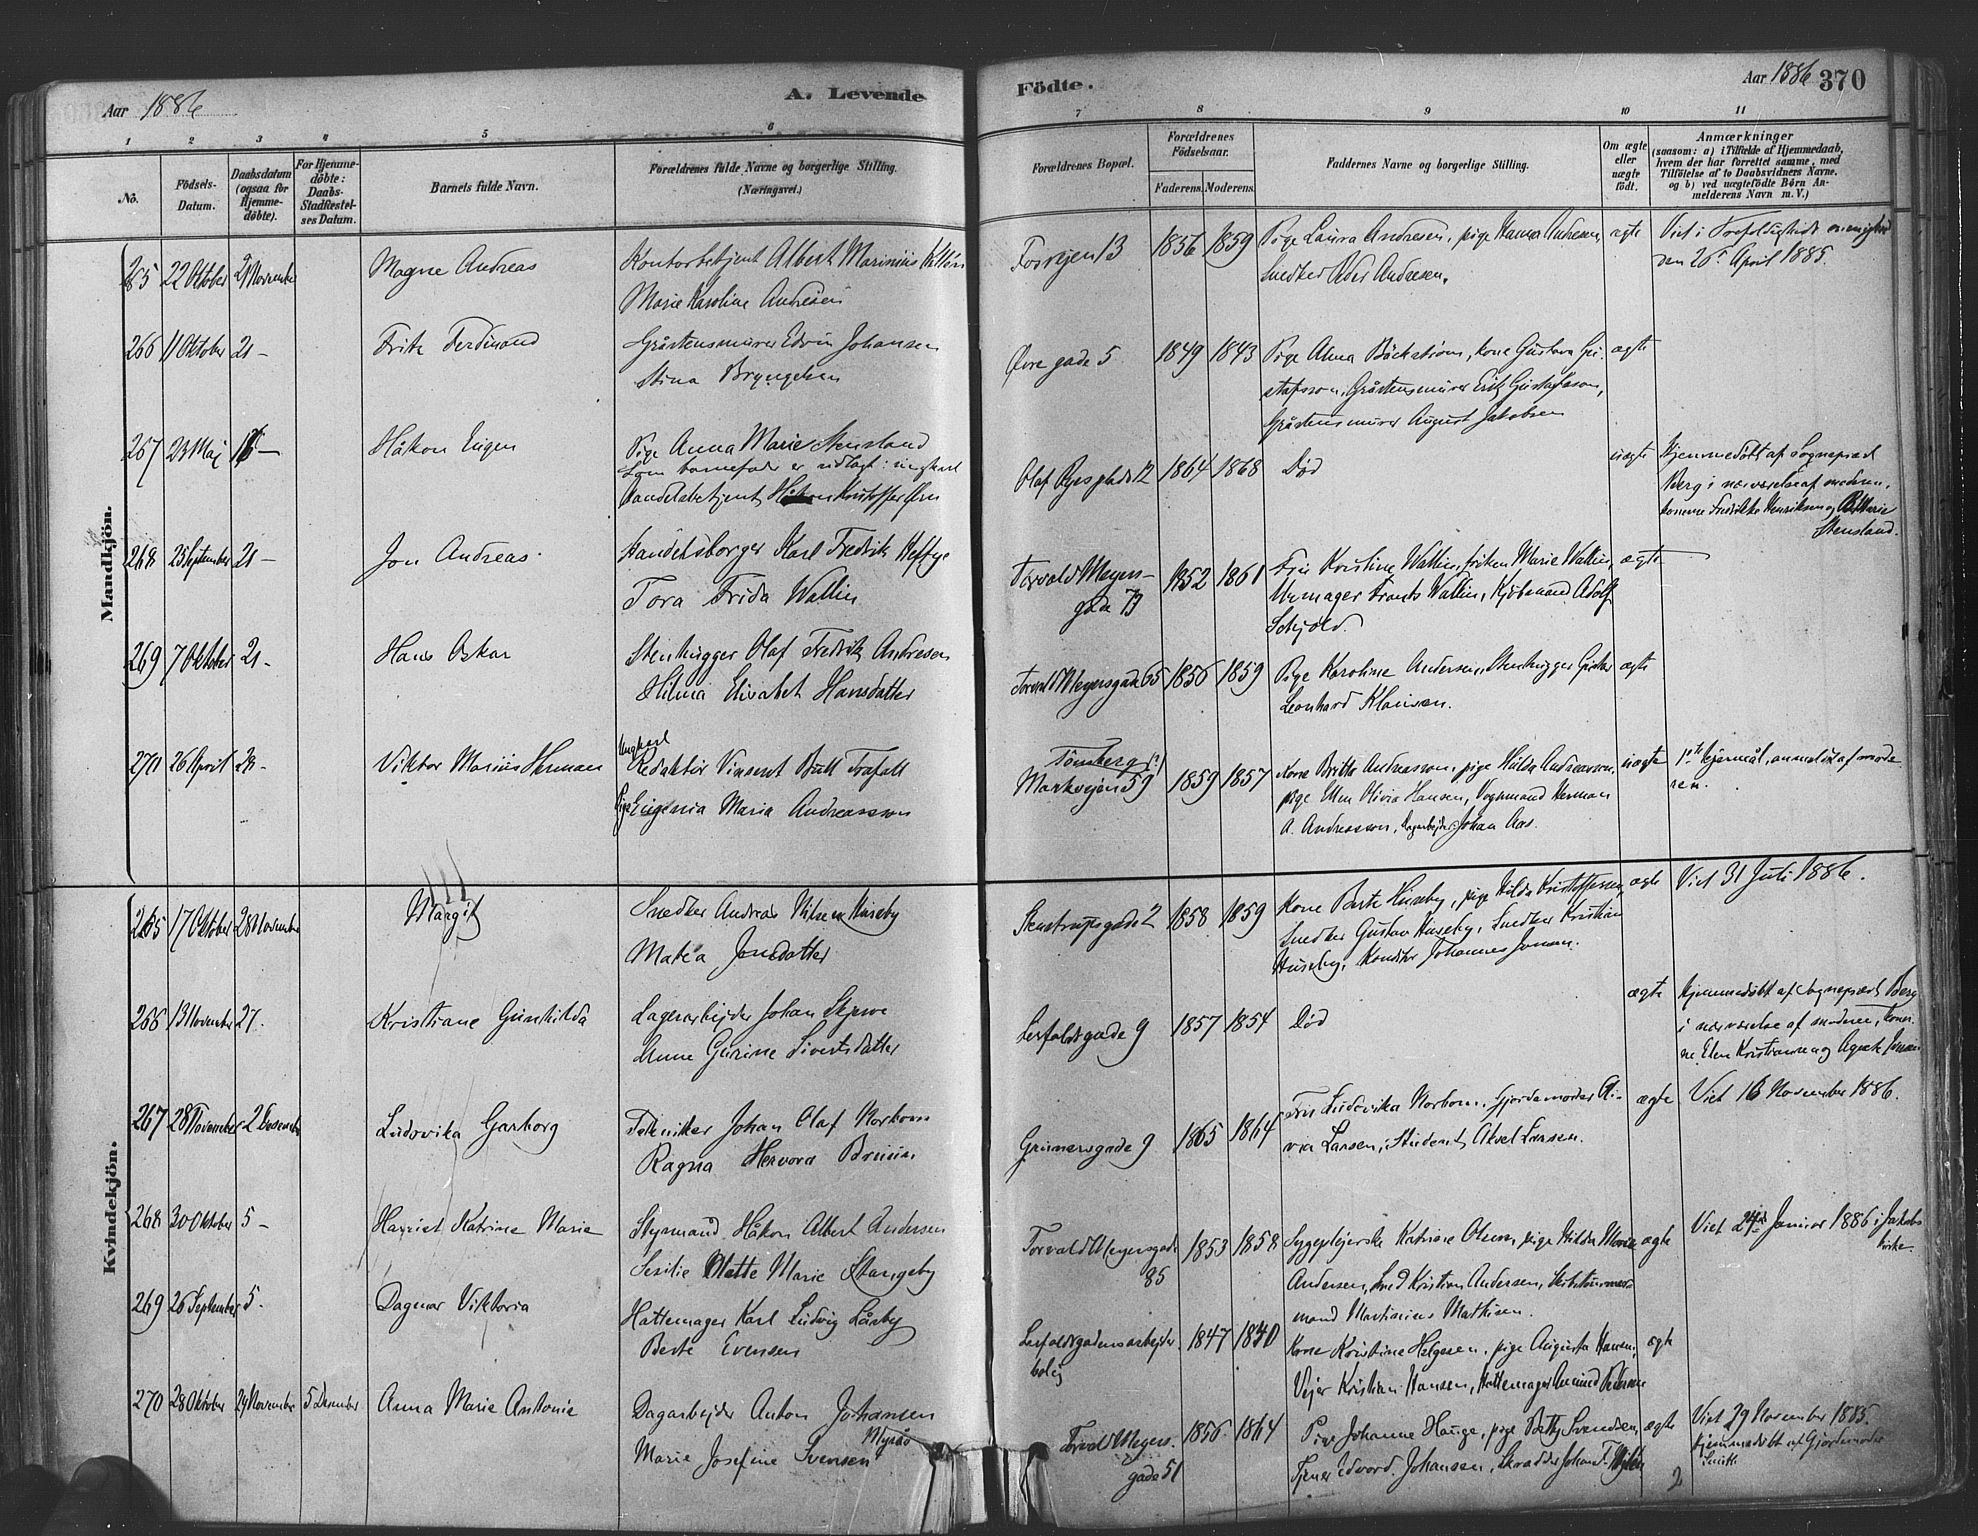 Aar 1886
A. Levende
Födte.
Aar 1886
370
1 2 3 4 5 6 7 8 9 10 11
No.
Födsels-
Datum.
Daabsdatum
(ogsaa for
Hjemme-
döbte).
For Hjemme-
döbte:
Daabs-
Stadfæstel-
ses Datum.
Barnets fulde Navn.
Forældrenes fulde Navne og borgerlige Stilling.
(Næringsvei.)
Forældrenes Bopæl.
Forældrenes
Födselsaar.
Faderens. Moderens.
Faddernes Navne og borgerlige Stilling.
Om ægte
eller
uægte
födt.
Anmærkninger
(saasom: a) i Tilfælde af Hjemmedaab,
hvem der har forrettet samme, med
Tilföielse af to Daabsvidners Navne.
og b) ved uægtefödte Börn An-
melderens Navn m. V.)
Mandkjön.
265 22 Oktober 21 November Magne Andreas
Kontorbetjent Albert Marinius
Marie Karoline Andresen
Fossvejen 13 1856 1859
Pige Laura Andresen, pige Hanna Andresen,
Snedker Peder Andresen.
ægte
den 26 April 1885.
266 11 Oktober 21 – Fritz Ferdinand
Gråstensmurer Edvin Johansen
Stina Bryngelsen
Øvre gade 5 1849 1843
Pige Anna Bäckström, kone Gustava Gu-
stafsson, Gråstensmurer Erik Gustafsson,
Gråstensmurer August Jakobsen
ægte
267 23 Maj 16 – Håkon Eugen
Pige Anna Marie Stensland
Som barnefader er udlagt: ungkarl
Handelsbetjent Kristoffer
Olaf Ryes plads 12 1864 1868
Död
uægte
Hjemmedöbt af Sogneprest
Berg i nærværelse af moderen,
konerne Fredrikke Henriksen og Marie
Stensland.
268 25 September 21 – Jon Andreas
Handelsborger Karl Fredrik Heftye
Tora Frida Wallin
Torvald Meyers-
gade 79 1852 1861
Fru Kristine Wallin, fröken Marie Wallin,
Urmager Frants Wallin, Kjöbmand Adolf
Schjold.
ægte
269 7 Oktober 21 – Hans Oskar
Stenhugger Olaf Fredrik Andresen
Hilma Elisabet Hansdatter
Torvald Meyersgade 65 1856 1859
Pige Karoline Andersen, Stenhugger Gustav
Leonhard Klausen.
ægte
270 26 April 28 – Viktor Marius Herman
Ungkarl
Redaktör Vinsent Butt Trafalt
Pige Eugenia Maria Andreasson
Tönsberg (?)
Markvejen 59 1859 1857
Kone Britta Andreasson, pige Hilda Andreasson,
pige Ellen Olivia Hansen, Vognmand Herman
A. Andreasson, Dagarbejder Johan Aas.
uægte
1ste lejermål, anmeldt af mode-
ren.
Kvindekjön.
265 17 Oktober 28 November Margit
Snedker Andreas Nilsen Huseby
Matea Jonsdatter
Stenstrupsgade 2 1858 1859
Kone Berte Huseby, pige Hilda Kristoffersen,
Snedker Gustav Huseby, Snedker Kristian
Huseby, Konditor Johannes Jonsen.
ægte
Viet 31 Juli 1886.
266 13 November 27. Kristiane Gunhilda
Lagerarbejder Johan Skjerve
Anne Gurine Sivertsdatter
Seifaldsgade 9 1857 1854
Död
ægte
Hjemmedöbt af Sogneprest Berg
i nærværelse af moderen, koner-
ne Elen Kristiansen og Agnete Jensen
267 28 November 2 Desember Ludovika Garborg
Tekniker Johan Olaf Norbom
Ragna Hervora Bruun
Grünersgade 9 1865 1864
Fru Ludovika Norbom, Gjordemoder Oli-
via Larsen, Student Aksel Larsen.
ægte
Viet 16 November 1886.
268 30 Oktober 5 – Harriet Katrine Marie
Styrmand Håkon Albert Andersen
Sesilie Olette Marie Stangeby
Torvald Meyersgade
85 1853 1858
Sygeplejerske Katrine Olsen, pige Hilda Marie
Andersen, Smed Kristian Andersen,
mand Martinius Mathisen.
ægte
Viet 24de Januar 1886 i Jakobs
kirke.
269 26 September 5. Dagmar Viktoria
Hattemager Karl Ludvig Låsby
Berte Evensen
Seifaldsgadens arbejder-
bolig 1847 1840
Kone Kristine Helgesen, pige Augusta Hansen,
Vejer Kristian Hansen, Hattemager Amund Pedersen
ægte
270 28 Oktober 29 November 5 Desember Anna Marie Antonie
Dagarbejder Anton Johansen
Marie Josefine Svensen
Torvald Meyers-
gade 51 1856 1864
Pige Johanne Hauge, pige Betty Svendsen,
Tjener Edvard Johanssen, Skrædder Johan T.
ægte
Viet 29 November 1885.
Hjemmedöbt af Gjordemoder
Smith
2